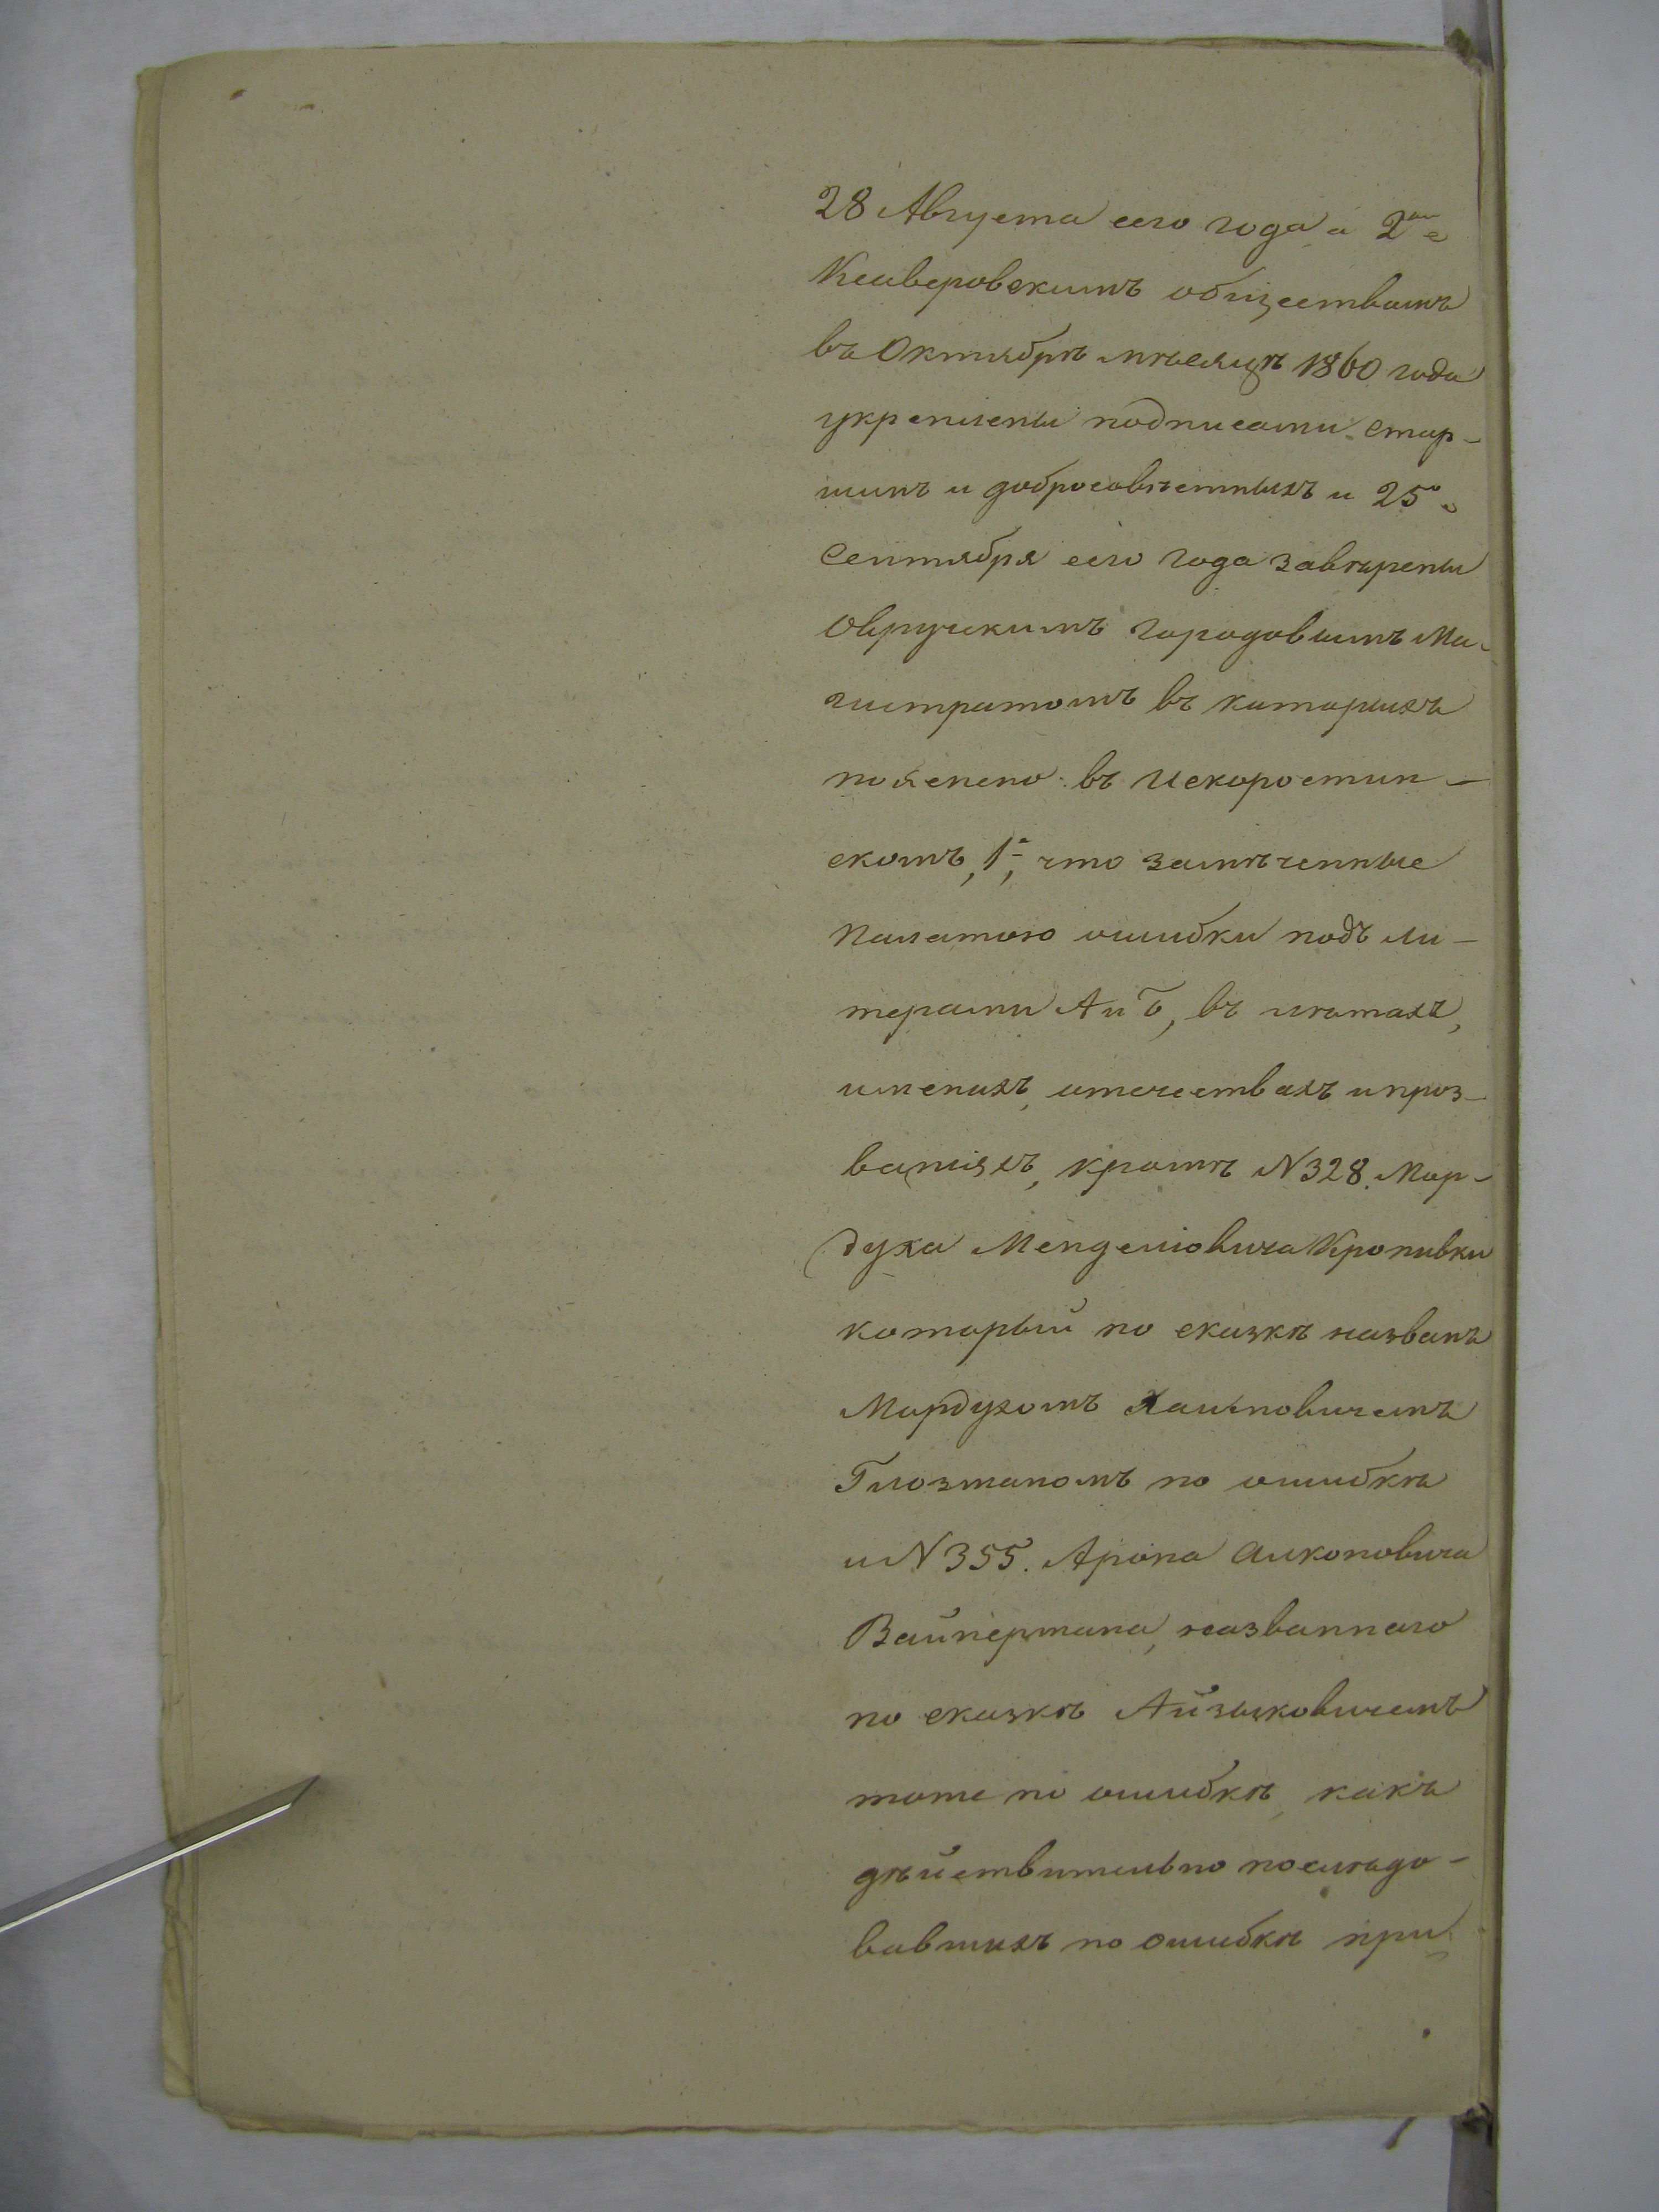 28 Августа сего года а 2е
Ксаверовскимъ обществомъ
въ Октябрѣ мѣсяцѣ 1860 года
укреплены подписами стар-
шинъ и добросовѣстныхъ и 25го
Сентября сего года завѣрены
Овручскимъ Городовымъ Ма-
гистратомъ въ которыхъ
пояснено въ Искоростин-
скомъ, 1е, что замѣченные
Палатою ошибки подъ ли-
терами А и Б, въ лѣтахъ,
именахъ, отечествахъ и проз-
ваніяхъ, кромѣ N 328. Мор-
духа Менделіовича Кропивки
который по сказкѣ названъ
Мордухомъ Хаимовичемъ
Глозманомъ по ошибкѣ
и N 355. Арона Аиконовича
Вайнермана, названнаго
по сказкѣ Айзиковичемъ
тоже по ошибкѣ, какъ
дѣйствительно послѣдо-
вавшихъ по ошибкѣ при